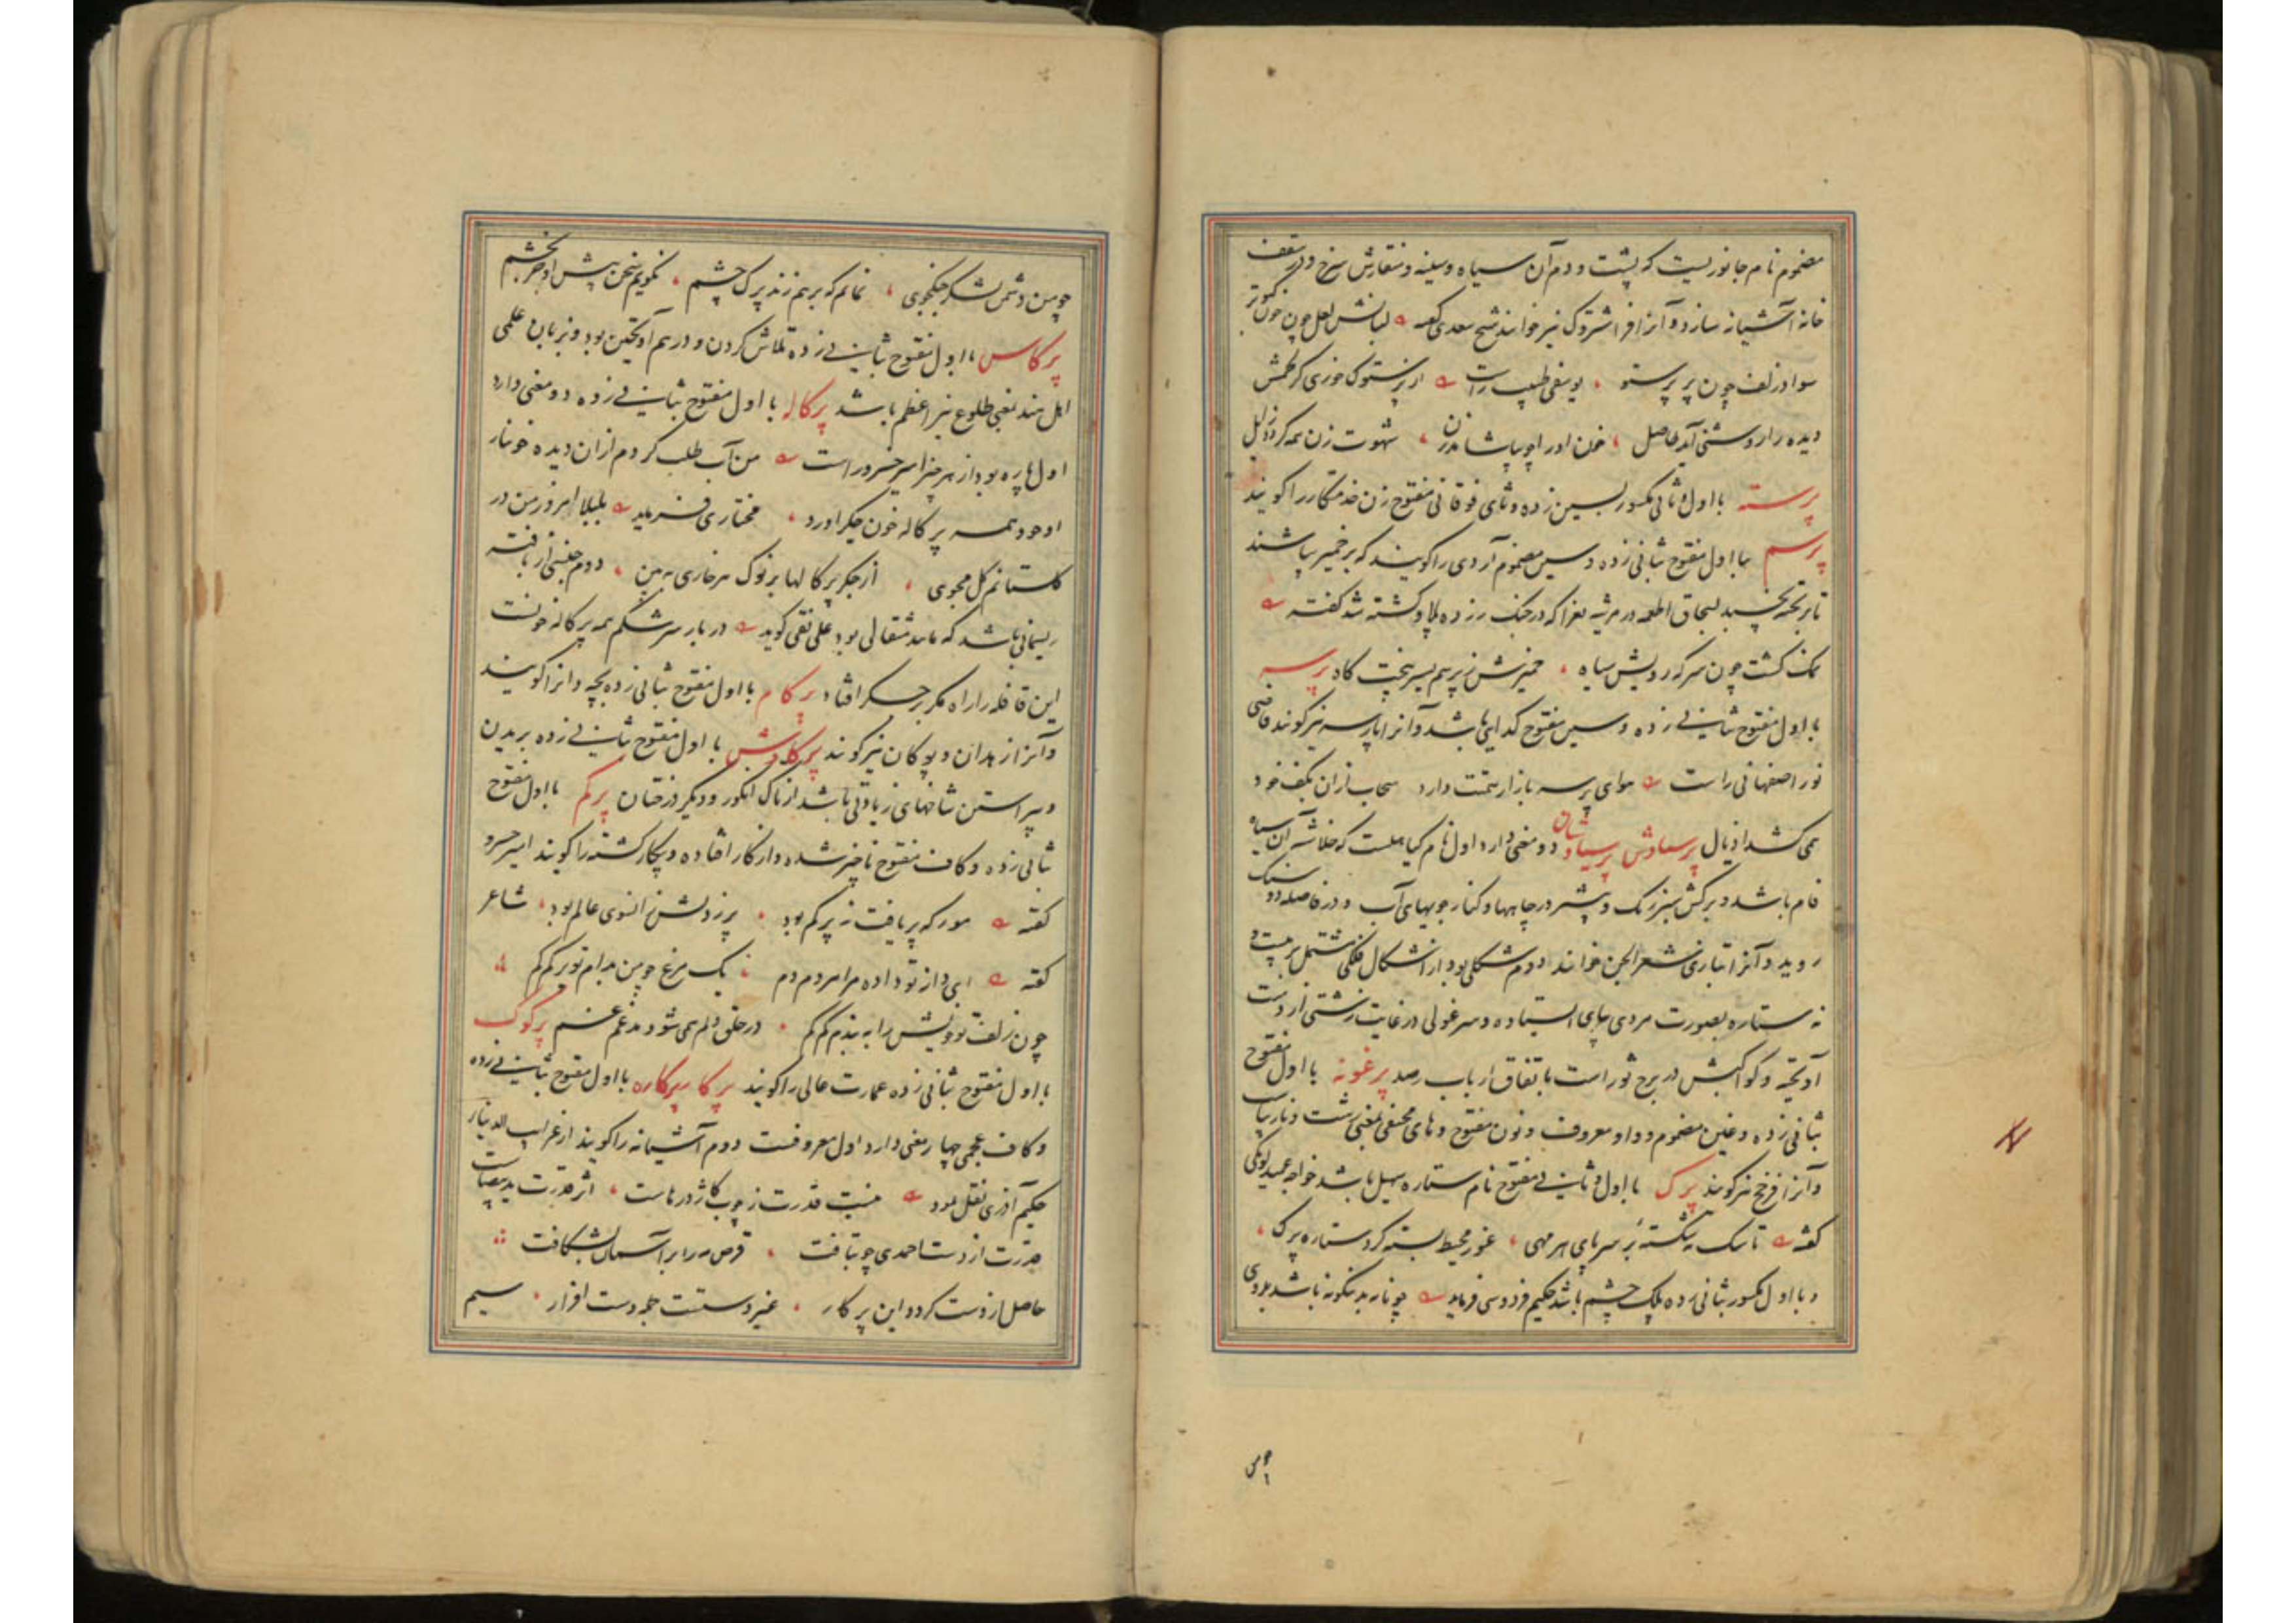 مضموم نام جانوریست که پشت و دم آن سیاه و سینه و منقارش سرخ و در سقف
خانه آشیانه سازد و آنرا فراشتروک نیز خوانند شیخ سعدی گفته لبانش لعل چون خون کبوتر
سواد زلف چون پر پرستو یوسفی طبیب راست از پرستوک خوری گر لحمش
دیده را روشنی آید حاصل خون او را چو بپاشاند زن شهوت زن همه گردد زایل
پرسته با اول و ثانی مکسور بسین زده و تای فوقانی مفتوح زن خدمتکار را گویند
پرسم با اول مفتوح بثانی زده و سین مضموم آردی را گویند که بر خمیر پاشند
تا بر تخته نچسبد بسحاق اطعمه در مرثیه بغرا که در جنگ رزده پلاو کشته شد گفته
نمک گشت چون سرکه رویش سیاه خمیرش ز پرسم بسر بیخت کاه پرسه
با اول مفتوح بثانی زده و سین مفتوح گدایی باشد و آنرا پارسه نیز گویند قاضی
نور اصفهانی راست هوای پرسه بازار همتت دارد سحاب ازان بکف خود
همی کشد اذیال پرسیاوش پرسیاوشان دو معنی دارد اول نام گیاهیست که خلاشه آن سیاه
فام باشد و برگش سبز رنگ و بیشتر در چاهها و کنار جویهای آب و در فاصله دو سنگ
روید و آنرا بتازی شعر الجن خوانند دوم شکلی بود از اشکال فلکی مشتمل بر بیست و
نه ستاره بصورت مردی بپای ایستاده و سر غولی در غایت زشتی از دست
آویخته و کواکبش در برج ثور است باتفاق ارباب رصد پرغونه با اول مفتوح
بثانی زده و غین مضموم و واو معروف و نون مفتوح و های مختفی بمعنی زشت و نازیبا
و آنرا فرخچ نیز گویند پرک با اول و ثانی مفتوح نام ستاره سهیل باشد خواجه عمید لوبکی
گفته تا سر به سر پای هر مهی غور محیط بسته کرد ستاره پرک
و با اول مکسور بثانی زده پلک چشم باشد حکیم فردوسی فرماید چو نامه بدینگونه باشد بدوی
چو من
چو من دشمن و لشکر جنگجوی نمانم که بر هم زند پرک چشم نگویم سخن پیش او جز بخشم
پرکاس با اول مفتوح بثانی زده تلاش کردن و در هم آویختن بود و بزبان علمی
اهل هند بمعنی طلوع نیر اعظم باشد پرکاله با اول مفتوح بثانی زده دو معنی دارد
اول پاره بود از هر چیز امیر خسرو راست من آب طلب کردم ازان دیده خونبار
او خود همه پرکاله خون جگر آورد مختاری فرماید بلبلا امروز من در
گلستانم گل مجوی از جگر پرکالها بر نوک هر خاری ببین دوم جنس از بافته
ریسمانی باشد که مانند مثقالی بود علی نقی گوید در بار سرشکم همه پرکاله خونست
این قافله را راه مگر بر جگر افتاد پرکام با اول مفتوح بثانی زده بچه دانرا گویند
و آنرا زهدان و پوگان نیز گویند پرکاوش با اول مفتوح بثانی زده بریدن
و پیراستن شاخهای زیادتی باشد از تاک انگور و دیگر درختان پرکم با اول مفتوح
بثانی زده و کاف مفتوح ناچیز شده و از کار افتاده و بیکار گشته را گویند امیر خسرو
گفته مور که پر یافت ز پر کم بود پر زدنش زانسوی عالم بود شاعر
گفته ای داز تو داده مرا مردم دم یک مرغ چو من بدام تو پرکم کم
چون زلف تو خویش را به بندم کم کم در حلق دلم همی شود مدغم غم پرکوک
با اول مفتوح بثانی زده عمارت عالی را گویند پرکا پرکاره با اول مفتوح بثانی زده
و کاف عجمی چهار معنی دارد اول معروفست دوم آشیانه را گویند از غرایب الدنیار
حکیم آذری نقل نمود نیست قدرت ز چوب کاژدرهاست اثر قدرت ید بیضاست
قدرت از دست احمدی چو بتافت قرص مه را بر آسمان بشکافت
حاصل از دست کرد و این پرکار غیر دستت جمله دست افزار سیم